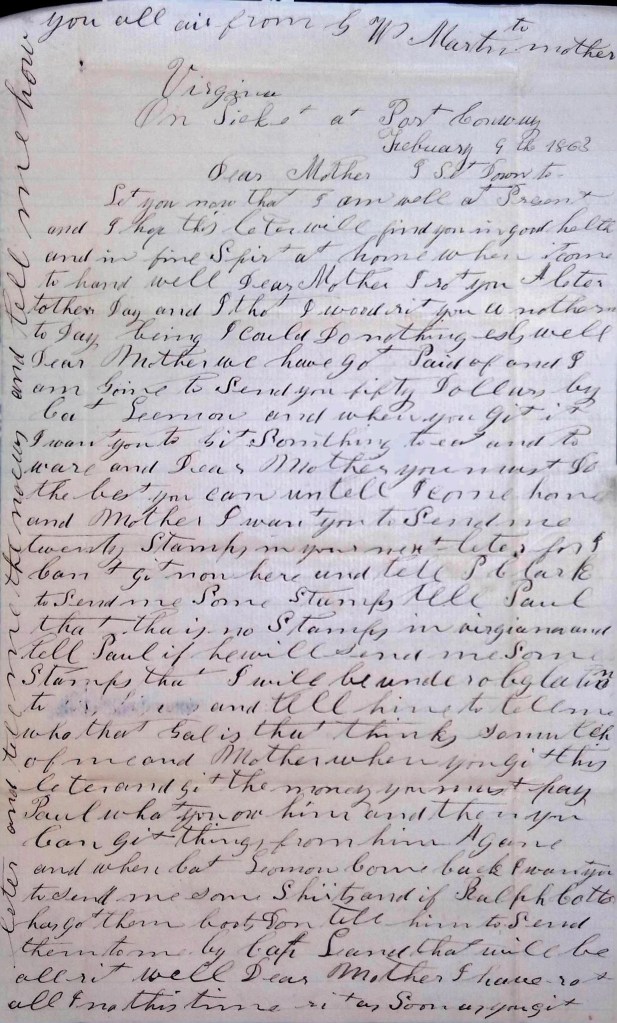 you all air from G W Martin to mother
Virginia
On Picket at Port Conway
February 9 th 1863
Dear Mother I Set Down to
Let you now that I am well at Present
and I hop this leter will find you in good helth
and in fine Spirt at home when it come
to hand well Dear Mother I rot you A leter
tother Day and I thot I wood rit you a nother
to Day being I could Do nothing els well
Dear Mother we have got Paid of and I
am Goine to Send you fifty Dollars by
Cat Leamon and when you git it
I want you to Git Somthing to eat and to
ware and Dear Mother you must Do
the best you can untell I come home
and Mother I want you to Send me
twenty Stamps in your next leter for I
Can t git non here and tell P Clark
to Send me Some Stamps tell Paul
that tha is no Stamps in virgiana and
tell Paul if he will Send me Some
Stamps that I will be under obglation
to and tell hime to tell me
who that Gal is that thinks So mutch
of me and Mother when you git this
leter and git the money you must pay
Paul what you ow him and then you
Can git things from him A gane
and when Cat Leamon Come back I want you
to send me some Shirts and if Ralph Cotto
has got them boots Don tell him to Send
them to me by Cap L and that will be
all rit well Dear Mother I have rot
all I no this time rit as Soon as you git
leter and tell me the noews and tell me how